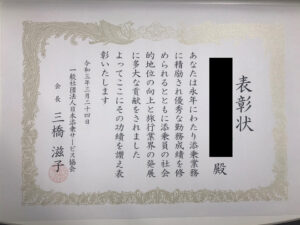 表彰状
殿
あなたは永年にわたり添乗業務
に精励され優秀な勤務成績を修
められるとともに添乗員の社会
的地位の向上と旅行業界の発展
に多大な貢献をされました
よってここにその功績を讃え表
彰いたします
令和三年三月二十四日
一般社団法人日本添乗サービス協会
会長 三橋滋子